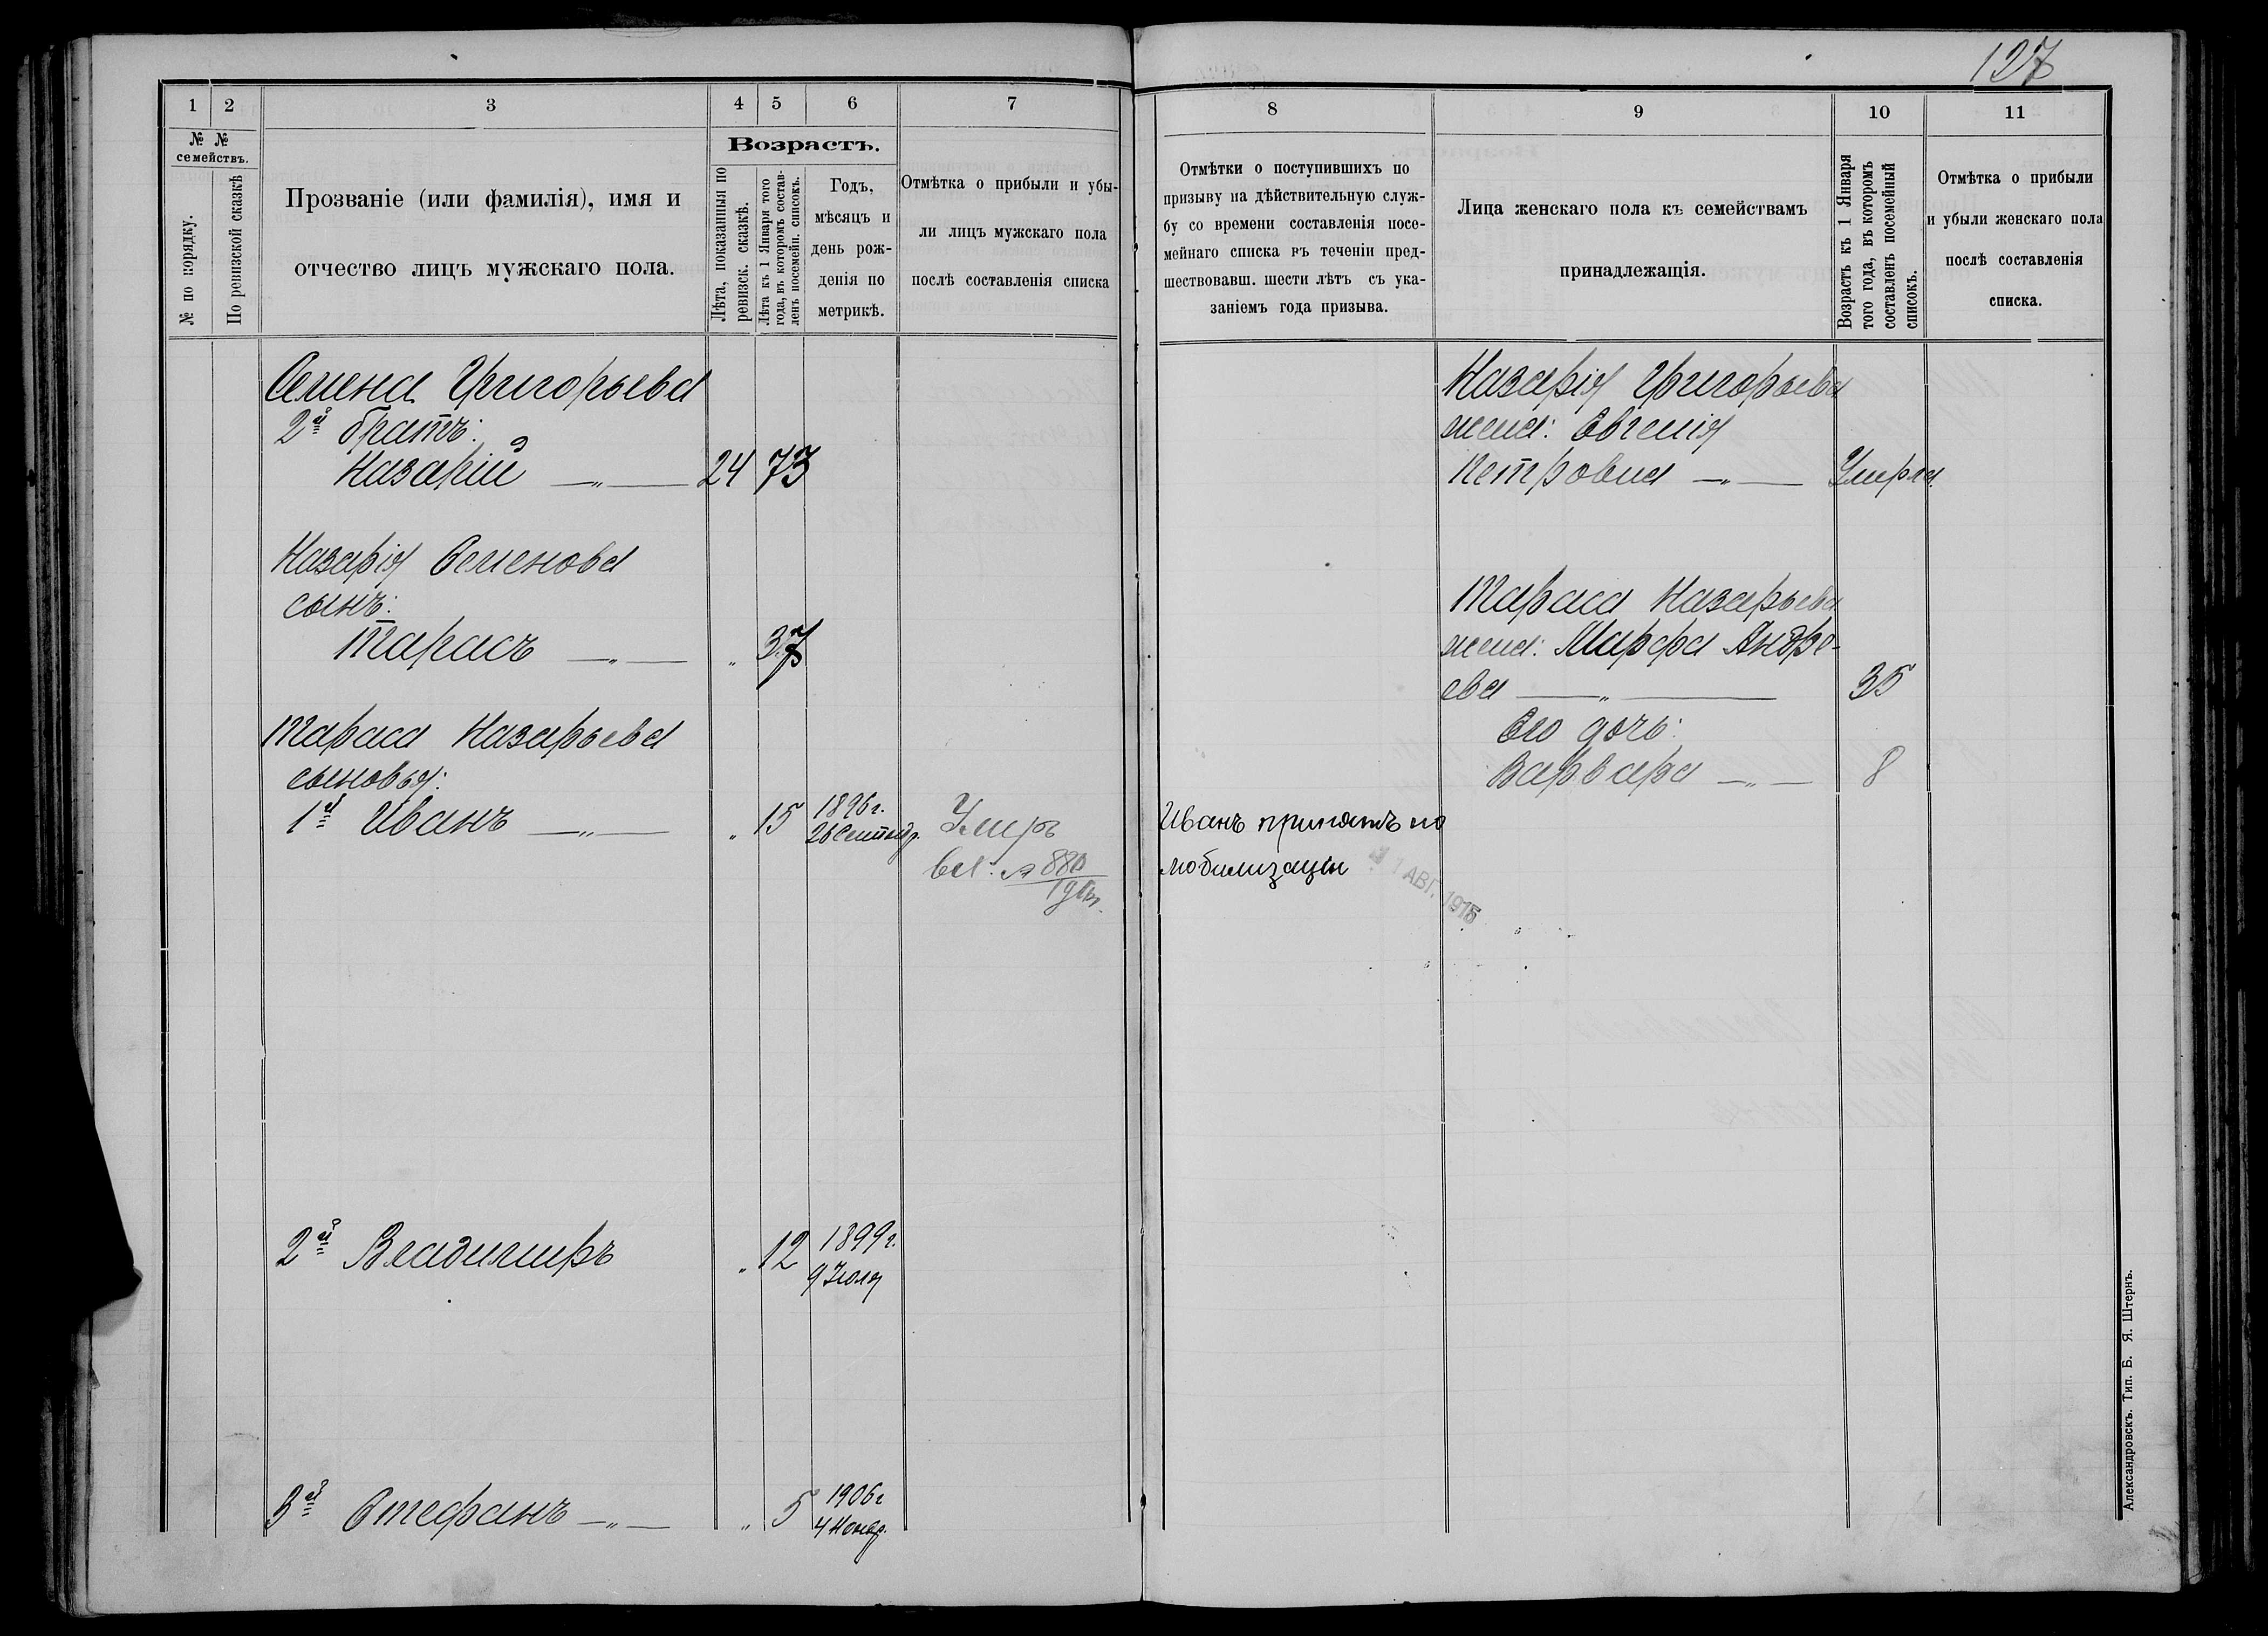 127
1 2 3 4 5 6 7
№ №
семействъ.
№ по порядку.
По ревизской сказкѣ
Прозваніе (или фамилія), имя и
отчество лицъ мужскаго пола.
Возрастъ.
Лѣта, показанныя по
ревизск. сказкѣ.
Лѣта къ 1 Января того
года, въ которомъ состав-
ленъ посемейн. списокъ.
Годъ,
мѣсяцъ и
день рож-
денія по
метрикѣ.
Отмѣтка о прибыли и убы-
ли лицъ мужскаго пола
послѣ составленія списка
Семена Григорьева
2й братъ:
Назарій —„— 24 73
Назарія Семенова
сынъ:
Тарасъ —„— „ 37
Тараса Назарьева
сыновья:
1й Иванъ —„— „ 15 1896г.
26 Сентября Умеръ
880
2й Владимиръ „ 12 1899г.
9 Іюля
3й Стефанъ —„— „ 5 1906г
4 Ноябр.
8 9 10 11
Отмѣтки о поступившихъ по
призыву на дѣйствительную служ-
бу со времени составленія посе-
мейнаго списка въ теченіи пред-
шествовавш. шести лѣтъ съ ука-
заніемъ года призыва.
Лица женскаго пола къ семействамъ
принадлежащія.
Возрастъ къ 1 Января
того года, въ которомъ
составленъ посемейный
списокъ.
Отмѣтка о прибыли
и убыли женскаго пола
послѣ составленія
списка.
Назарія Григорьева
жена: Евгенія
Петровна —„— Умерла.
Тараса Назарьева
жена: Марфа Андре-
ева —„— 35
Его дочь:
Варвара —„— 8
Иванъ принятъ по
мобилизаціи
АВГ. 1915
Александровскъ. Тип. Б. Я. Штернъ.